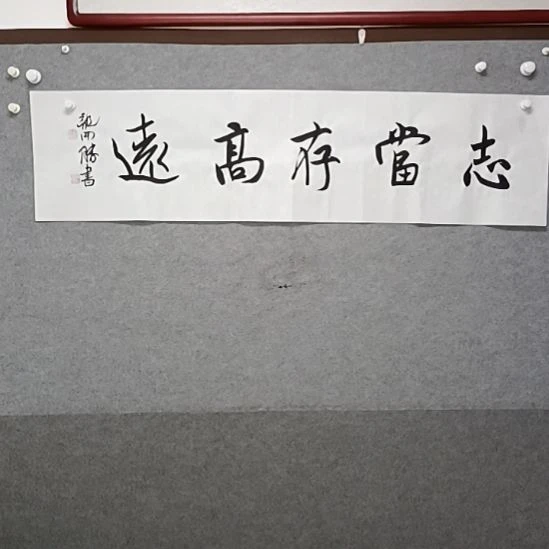 志當存高遠
勝書